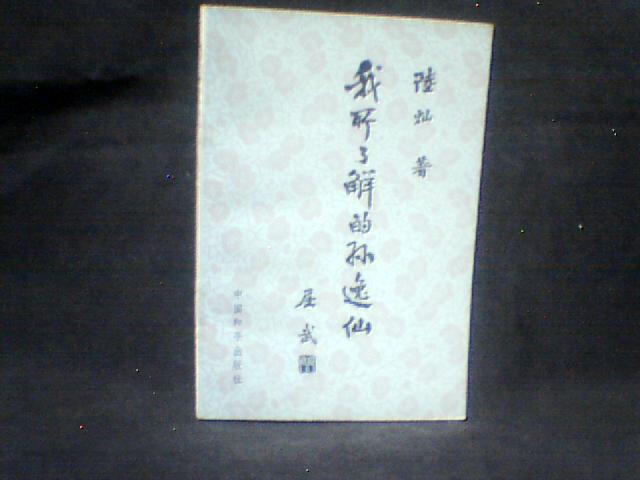 陸灿 著
我所了解的孙逸仙
屈武
中国和平出版社